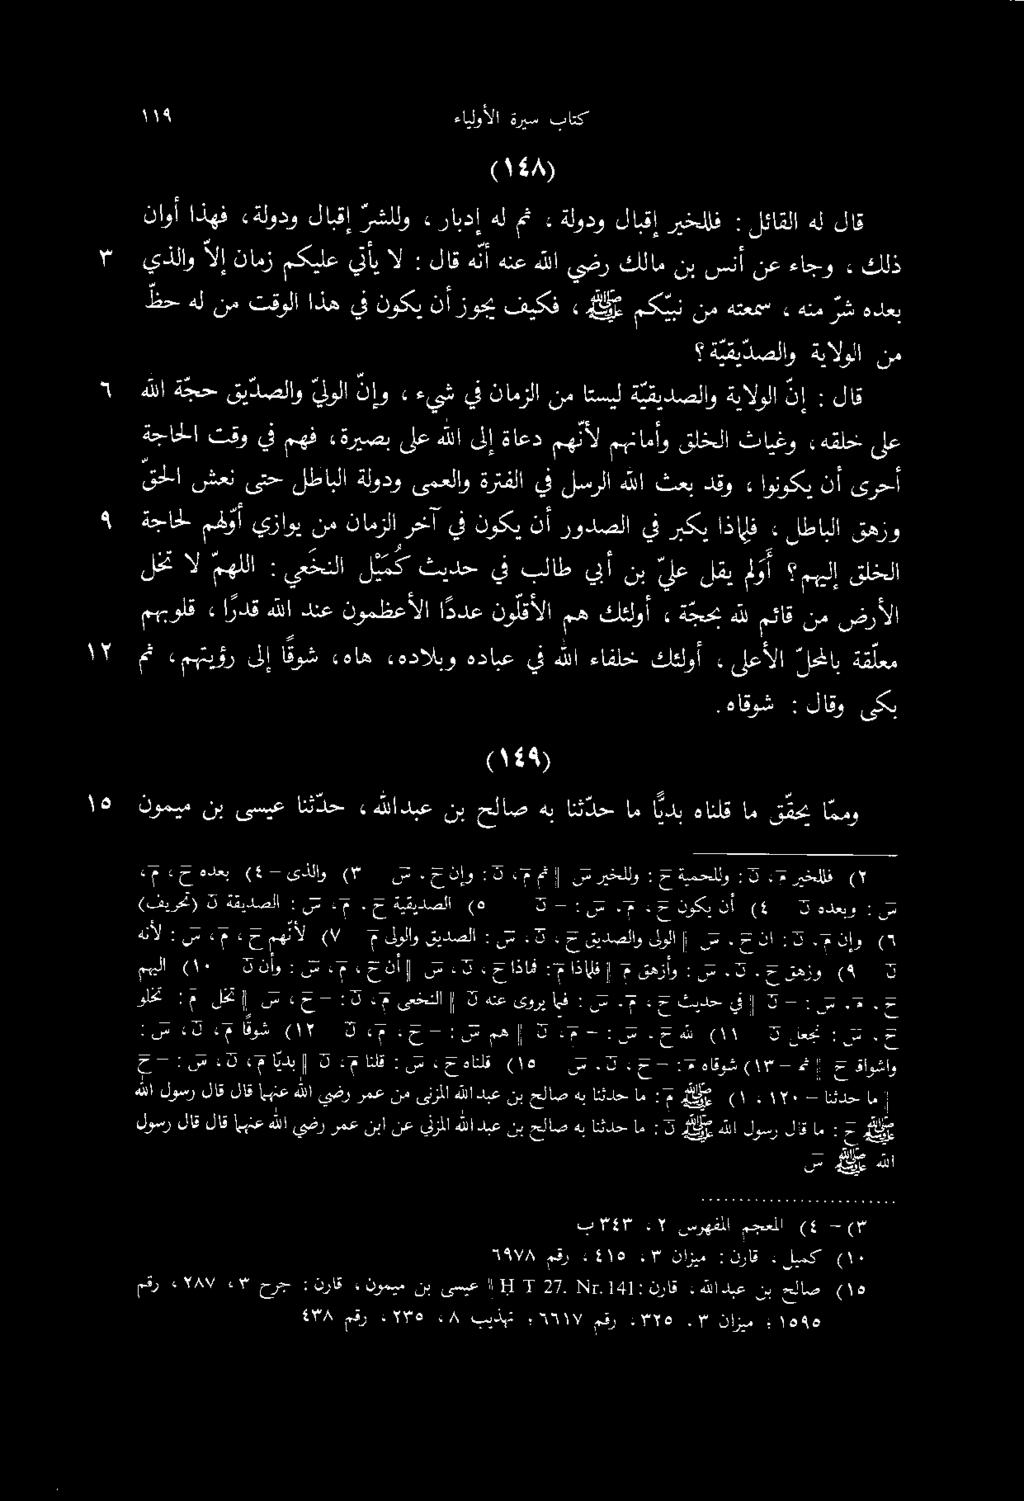 كتاب سيرة الأولياء ١١٩
(١٤٨)
قال له القائل : فللخير إقبال ودولة ، ثم له إدبار ، وللشرّ إقبال ودولة ، فهذا أوان
ذلك ، وجاء عن أنس بن مالك رضي الله عنه أنّه قال : لا يأتي عليكم زمان إلاّ والذي ٣
بعده شرّ منه ، سمعته من نبيّكم ﷺ ، فكيف يجوز أن يكون في هذه الوقت من له حظّ
من الولاية والصدّيقيّة ؟
قال : إنّ الولاية والصديقيّة ليستا من الزمان في شيء ، وإنّ الوليّ والصدّيق حجّة الله ٦
على خلقه ، وغياث الخلق وأمانهم لأنّهم دعاة إلى الله على بصيرة ، فهم في وقت الحاجة
أحرى أن يكونوا ، وقد بعث الله الرسل في الفترة والعمى ودولة الباطل حتى نعش الحقّ
وزهق الباطل ، فلماذا يكبر في الصدور أن يكون في آخر الزمان من يوازي أوّلهم لحاجة ٩
الخلق إليهم ؟ أَوَلم يقل عليّ بن أبي طالب في حديث كُمَيْل النخَعي : اللهمّ لا تخل
الأرض من قائم لله بحجّة ، أولئك هم الأقلّون عددًا الأعظمون عند الله قدرًا ، قلوبهم
معلّقة بالمحلّ الأعلى ، أولئك خلفاء الله في عباده وبلاده ، هاه ، شوقًا إلى رؤيتهم ، ثم ١٢
بكى وقال : شوقاه .
(١٤٩)
وممّا يحقّق ما قلناه بديًّا ما حدّثنا به صالح بن عبدالله ، حدّثنا عيسى بن ميمون ١٥
٢) فللخير م ، ن : وللحمية ح : وللخير س || ثم م ، ن : وإن ح ، س ٣) والذى – ٤) بعده ح ، م ،
س : وبعده ن ٤) أن يكون ح ، م ، س : – ن ٥) الصديقية ح ، م ، س : الصدقة ن (تحريف)
٦) وإن م ، ن : ان ح ، س || الولى والصديق ح ، ن ، س : الصديق والولى م ٧) لأنّهم ح ، م ، س : لأنه
ن ٩) وزهق ح ، ن ، س : وأزهق م || فلماذا م : فماذا ح ، ن ، س || أن ح ، م ، س : وأن ن ١٠) اليهم
ح ، م ، س : – ن || في حديث ح ، م ، س : فيما يروى عنه ن || النخعى م ، ن : – ح ، س || تخل م : تخلو
ح ، س : تجعل ن ١١) لله ح ، س : – م ، ن || هم س : – ح ، م ، ن ١٢) شوقًا م ، ن ، س :
واشوقاه ح || ثم – ١٣) شوقاه م : – ح ، ن ، س ١٥) قلناه ح ، س : قلنا م ، ن || بديًّا م ، ن ، س : – ح
|| ما حدثنا – ١٢٠ ، ١) ﷺ م : ما حدثنا به صالح بن عبدالله المزنى من عمر رضي الله عنهما قال قال رسول الله
ﷺ ح : ما قال رسول الله ﷺ ن : ما حدثنا به صالح بن عبدالله المزني عن ابن عمر رضي الله عنهما قال قال رسول
الله ﷺ س
٣) – ٤) المعجم المفهرس ٢ ، ٣٤٣ ب
١٠) كميل ، قارن : ميزان ٣ ، ٤١٥ ، رقم ٦٩٧٨
١٥) صالح بن عبدالله ، قارن : H T 27. Nr. 141 || عيسى بن ميمون ، قارن : جرح ٣ ، ٢٨٧ ، رقم
١٥٩٥ ؛ ميزان ٣ ، ٣٢٥ ، رقم ٦٦١٧ ؛ تهذيب ٨ ، ٢٣٥ ، رقم ٤٣٨